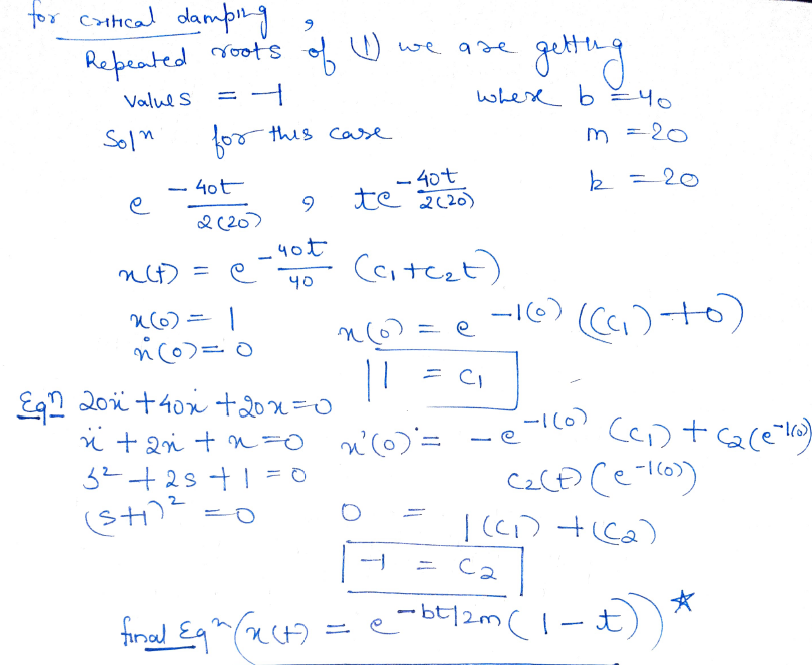 for critical damping,
Repeated roots of (1) we are getting
values = -1 where b = 40
Sol^n for this case m = 20
e^{-40t/2(20)}, te^{-40t/2(20)} k = 20
x(t) = e^{-40t/40} (c₁+c₂t)
x(0) = 1
ẋ(0) = 0
x(0) = e^{-1(0)} ((c₁)+0)
|1 = c₁
Eq^n 20ẍ+40ẋ+20x=0
ẍ+2ẋ+x=0
s²+2s+1=0
(s+1)²=0
x'(0) = -e^{-1(0)} (c₁) + c₂(e^{-1(0)})
c₂(t)(e^{-1(0)})
0 = 1(c₁)+(c₂)
-1 = c₂
final Eq^n (x(t) = e^{-bt/2m}(1-t)) ☆